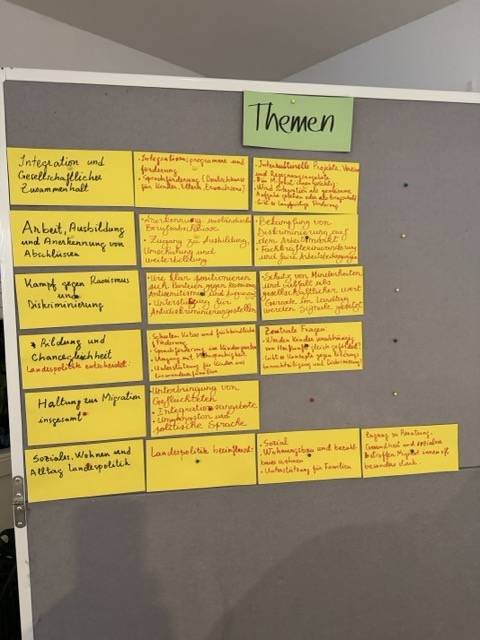 Themen
Integration und
Gesellschaftlicher
Zusammenhalt
• Integrationsprogramme und
förderung
• Sprachförderung (Deutschkurse
für Kinder, Eltern, Erwachsene)
• Interkulturelle Projekte, Vereine
und
• Wird Integration als gemeinsame
Aufgabe gesehen oder als
• Gibt es langfristige Förderung
Arbeit, Ausbildung
und Anerkennung von
Abschlüssen
• Anerkennung ausländischer
Berufsabschlüsse
• Zugang zu Ausbildung,
Umschulung und
Weiterbildung
• Bekämpfung von
Diskriminierung auf
dem Arbeitsmarkt
• Fachkräfteeinwanderung
und faire Arbeitsbedingungen
Kampf gegen Rassismus
und
Diskriminierung
• Wie klar positionieren
sich Parteien gegen Rassismus,
Antisemitismus und
• Unterstützung für
Antidiskriminierungsstellen
• Schutz von Minderheiten
und Vielfalt als
gesellschaftlicher Wert
• Gerade im Landtag
werden Signale gesetzt.
Bildung und
Chancengleichheit
Landespolitik entscheidet:
Schulen, Kitas und frühkindliche
Förderung
• Sprachförderung im Kindergarten
• Umgang mit Mehrsprachigkeit
• Unterstützung für Kinder aus
Zentrale Fragen
• Werden Kinder unabhängig
von Herkunft gleich gefördert?
Gibt es Konzepte gegen Bildungs-
benachteiligung und Diskriminierung?
Haltung zur Migration
insgesamt
• Unterbringung von
Geflüchteten
• Integrationsangebote
• Umgangston und
politische Sprache
Soziales, Wohnen und
Alltag Landespolitik
Landespolitik beeinflusst:
• Sozial
• Wohnungsbau und bezahl-
bares wohnen
• Unterstützung für Familien
Zugang zu Beratung,
Gesundheit und soziale
betreffen Migrant innen oft
besonders stark.